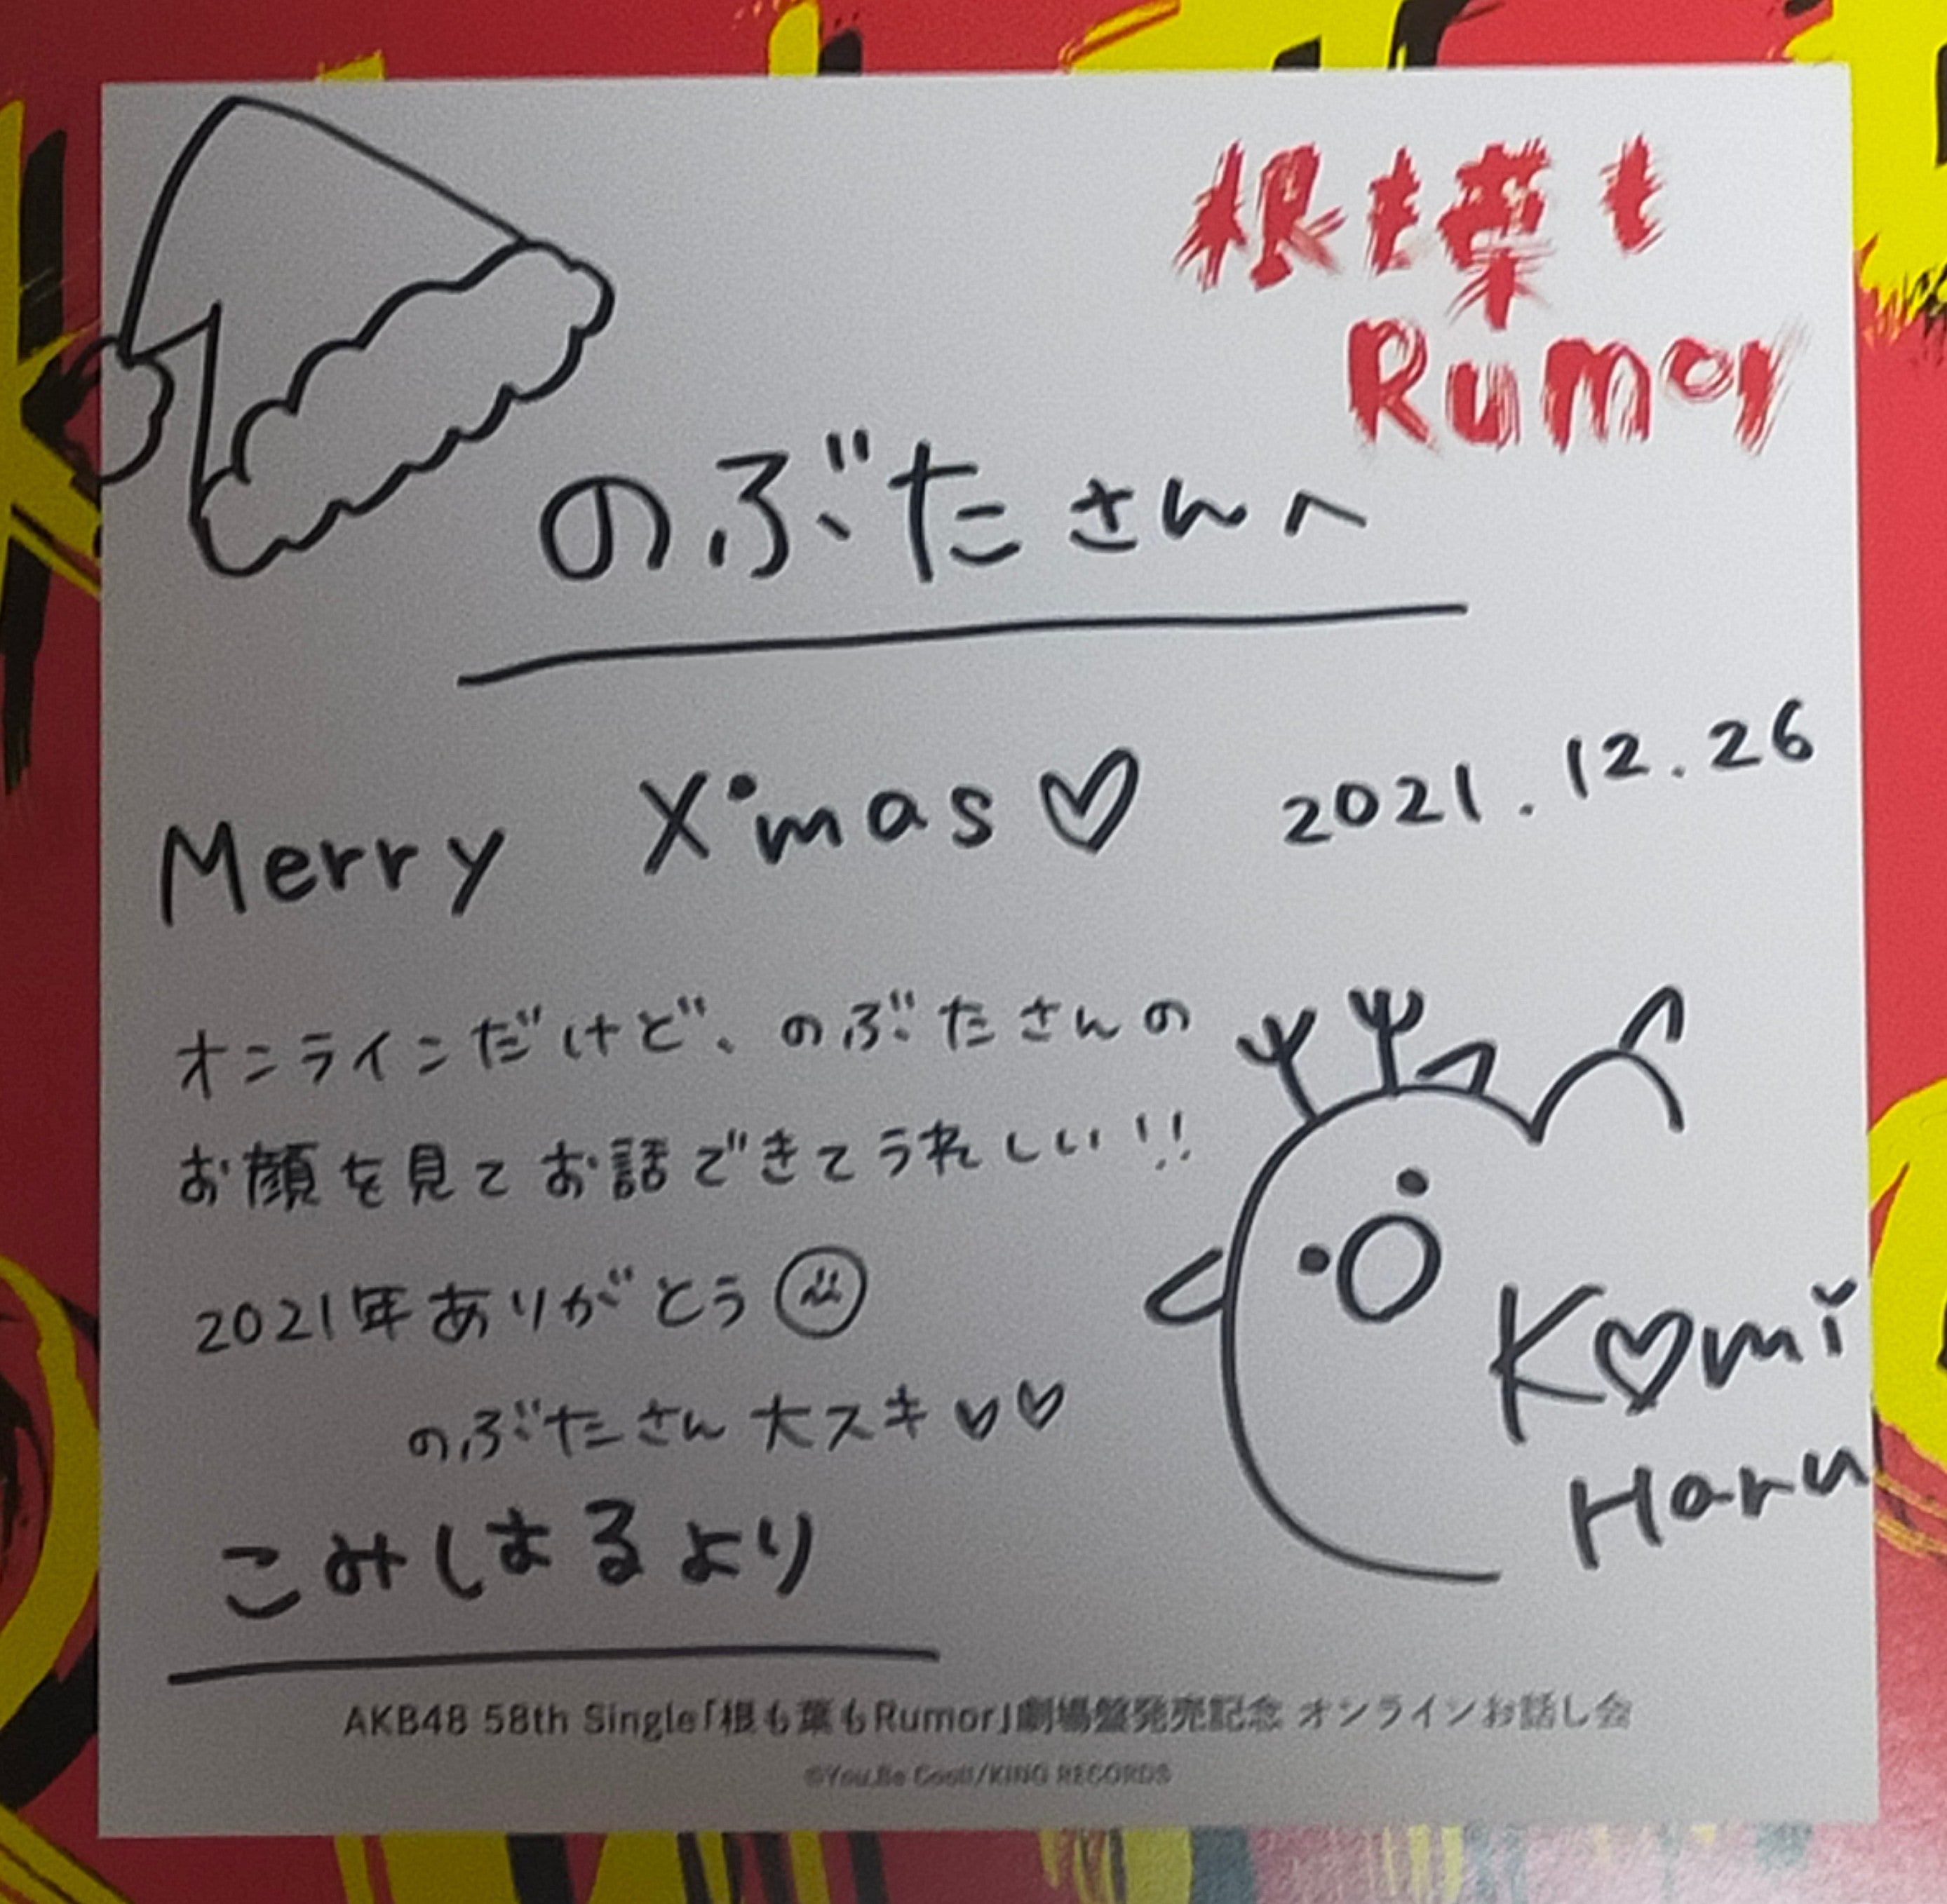 根も葉も
Rumor
のぶたさんへ
Merry X'mas♡ 2021.12.26
オンラインだけど、のぶたさんの
お顔を見てお話できてうれしい!!
2021年ありがとう
のぶたさん大スキ♡♡
こみしはるより
K♡mi
Haru
AKB48 58th Single「根も葉もRumor」劇場盤発売記念 オンラインお話し会
©You, Be Cool!/KING RECORDS